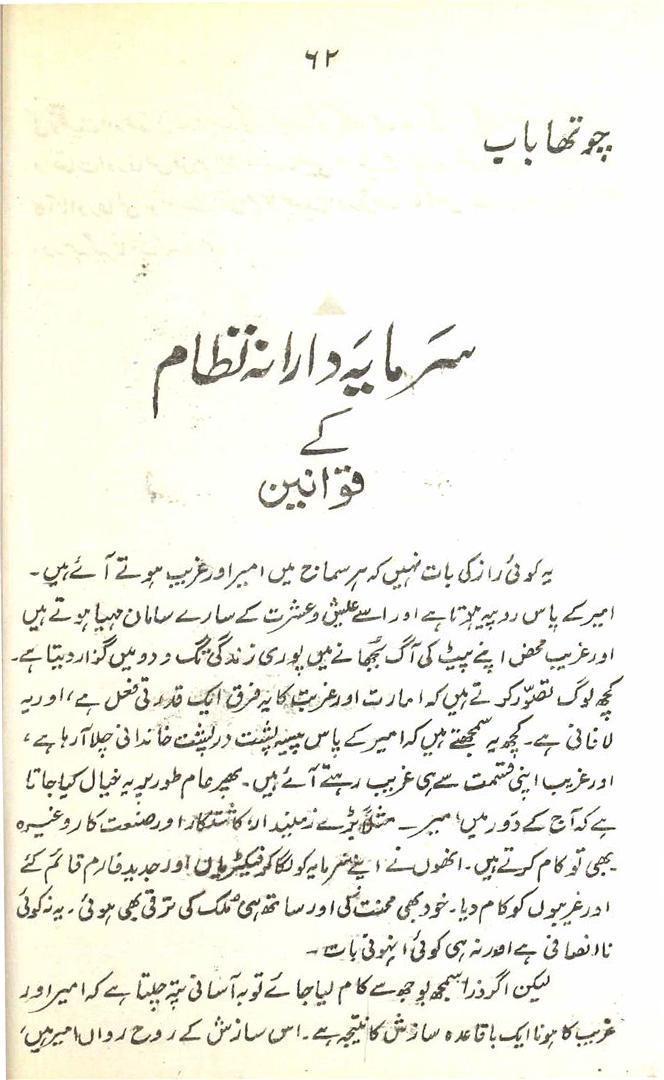 ۶۲
چوتھا باب
سرمایہ دارانہ نظام
کے
قوانین
یہ کوئی راز کی بات نہیں کہ ہر سماج میں امیر اور غریب ہوتے آئے ہیں۔
امیر کے پاس روپیہ ہوتا ہے اور اسے عیش و عشرت کے سارے سامان مہیا ہوتے ہیں
اور غریب محض اپنے پیٹ کی آگ بجھانے میں پوری زندگی تگ و دو میں گزار دیتا ہے۔
کچھ لوگ تصوّر کرتے ہیں کہ امارت اور غربت کا یہ فرق ایک قدرتی فعل ہے، اور یہ
لافانی ہے۔ کچھ یہ سمجھتے ہیں کہ امیر کے پاس پیسہ پشت در پشت خاندانی چلا آ رہا ہے،
اور غریب اپنی قسمت سے ہی غریب رہتے آئے ہیں۔ پھر عام طور پر یہ خیال کیا جاتا
ہے کہ آج کے دَور میں امیر۔ مثلاً بڑے زمیندار، کاشتکار اور صنعت کار وغیرہ
بھی تو کام کرتے ہیں۔ انھوں نے اپنے سرمایہ کو لگا کر فیکٹریاں اور جدید فارم قائم کئے
اور غریبوں کو کام دیا۔ خود بھی محنت کی اور ساتھ ہی ملک کی ترقی بھی ہوئی۔ یہ نہ کوئی
ناانصافی ہے اور نہ ہی کوئی انہونی بات۔
لیکن اگر ذرا سمجھ بوجھ سے کام لیا جائے تو بہ آسانی پتہ چلتا ہے کہ امیر اور
غریب کا ہونا ایک باقاعدہ سازش کا نتیجہ ہے۔ اس سازش کے روح رواں امیر ہیں،